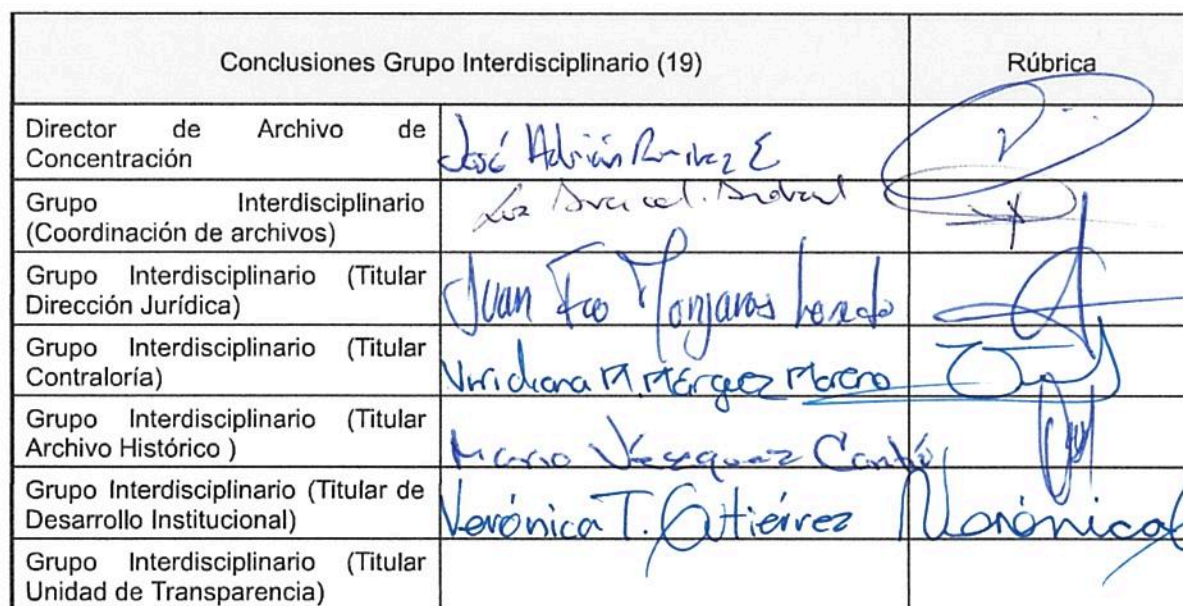 Conclusiones Grupo Interdisciplinario (19) Rúbrica
Director de Archivo de
Concentración
José Adrián Ramírez E
Grupo Interdisciplinario
(Coordinación de archivos)
Luz
Grupo Interdisciplinario (Titular
Dirección Jurídica)
Juan Fco Monjaras
Grupo Interdisciplinario (Titular
Contraloría)
Viridiana M Márquez Moreno
Grupo Interdisciplinario (Titular
Archivo Histórico )
Mario Vázquez Cantú
Grupo Interdisciplinario (Titular de
Desarrollo Institucional)
Verónica T. Gutiérrez Verónica
Grupo Interdisciplinario (Titular
Unidad de Transparencia)